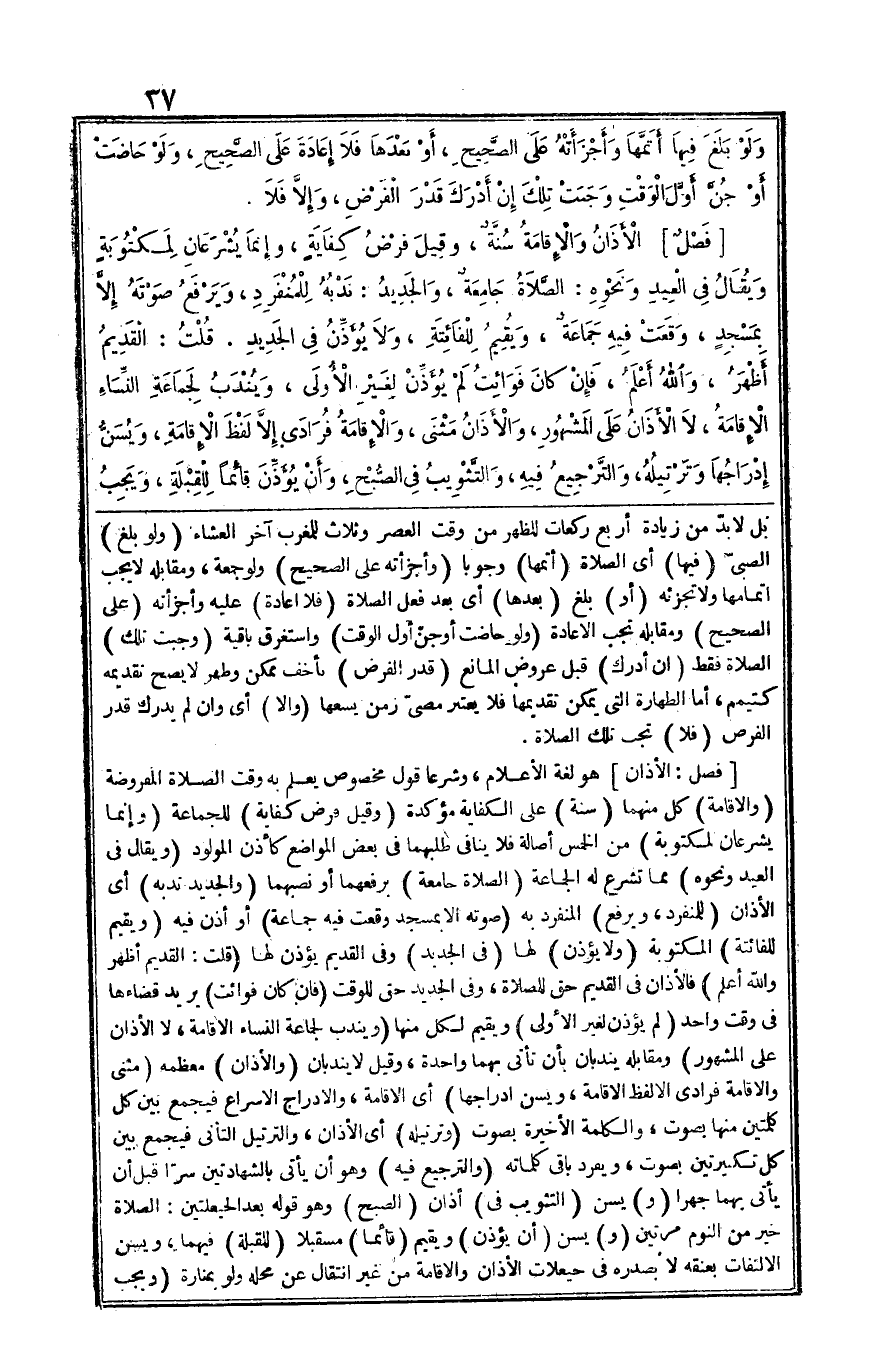 ٣٧
وَلَوْ بَلَغَ فِيهَا أَتَمَّهَا وَأَجْزَأَتْهُ عَلَى الصَّحِيحِ ، أَوْ بَعْدَهَا فَلَا إِعَادَةَ عَلَى الصَّحِيحِ ، وَلَوْ حَاضَتْ
أَوْ جُنَّ أَوَّلَ الْوَقْتِ وَجَبَتْ تِلْكَ إِنْ أَدْرَكَ قَدْرَ الْفَرْضِ ، وَإِلَّا فَلَا .
[ فَصْلٌ ] الْأَذَانُ وَالْإِقَامَةُ سُنَّةٌ ، وَقِيلَ فَرْضُ كِفَايَةٍ ، وَإِنمَا يُشْرَعَانِ لِمَكْتُوبَةٍ
وَيُقَالُ فِي الْعِيدِ وَنَحْوِهِ : الصَّلَاةُ جَامِعَةٌ ، وَالْجَدِيدُ : نَدْبُهُ لِلْمُنْفَرِدِ ، وَيَرْفَعُ صَوْتَهُ إِلَّا
بِمَسْجِدٍ ، وَقَعَتْ فِيهِ جَمَاعَةٌ ، وَيُقِيمُ لِلْفَائِتَةِ ، وَلَا يُؤَذِّنُ فِي الْجَدِيدِ . قُلْتُ : الْقَدِيمُ
أَظْهَرُ ، وَاللهُ أَعْلَمُ ، فَإِنْ كَانَ فَوَائِتُ لَمْ يُؤَذِّنْ لِغَيْرِ الْأُولَى ، وَيُنْدَبُ لِجَمَاعَةِ النِّسَاءِ
الْإِقَامَةُ ، لَا الْأَذَانُ عَلَى الْمَشْهُورِ ، وَالْأَذَانُ مَثْنَى ، وَالْإِقَامَةُ فُرَادَى إِلَّا لَفْظَ الْإِقَامَةِ ، وَيُسَنُّ
إِدْرَاجُهَا وَتَرْتِيلُهُ ، وَالتَّرْجِيعُ فِيهِ ، وَالتَّثْوِيبُ فِي الصُّبْحِ ، وَأَنْ يُؤَذِّنَ قَائِمًا لِلْقِبْلَةِ ، وَيَجِبُ
بل لابدّ من زيادة أربع ركعات للظهر من وقت العصر وثلاث للمغرب آخر العشاء ( ولو بلغ )
الصبىّ ( فيها ) أى الصلاة ( أتمها ) وجوبا ( وأجزأته على الصحيح ) ولوجمعة ، ومقابله لايجب
اتمامها ولاتجزئه ( أو ) بلغ ( بعدها ) أى بعد فعل الصلاة ( فلا اعادة ) عليه وأجزأته ( على
الصحيح ) ومقابله تجب الاعادة ( ولو حاضت أوجنّ أول الوقت ) واستغرق باقية ( وجبت تلك )
الصلاة فقط ( ان أدرك ) قبل عروض المانع ( قدر الفرض ) بأخف ممكن وطهر لايصح تقديمه
كتيمم ، أما الطهارة التى يمكن تقديمها فلا يعتبر مضىّ زمن يسعها ( والا ) أى وان لم يدرك قدر
الفرض ( فلا ) تجب تلك الصلاة .
[ فصل : الأذان ] هو لغة الأعلام ، وشرعا قول مخصوص يعلم به وقت الصلاة المفروضة
( والاقامة ) كل منهما ( سنة ) على الكفاية مؤكدة ( وقيل فرض كفاية ) للجماعة ( وإنما
يشرعان لمكتوبة ) من الخمس أصالة فلا ينافى طلبهما فى بعض المواضع كأذن المولود ( ويقال فى
العيد ونحوه ) مما تشرع له الجماعة ( الصلاة جامعة ) برفعهما أو نصبهما ( والجديد ندبه ) أى
الأذان ( للمنفرد ، ويرفع ) المنفرد به ( صوته الابمسجد وقعت فيه جماعة ) أو أذن فيه ( ويقيم
للفائتة ) المكتوبة ( ولايؤذن ) لها ( فى الجديد ) وفى القديم يؤذن لها ( قلت : القديم أظهر
والله أعلم ) فالأذان فى القديم حق للصلاة ، وفى الجديد حق للوقت ( فان كان فوائت ) يريد قضاءها
فى وقت واحد ( لم يؤذن لغير الأولى ) ويقيم لكل منها ( ويندب لجماعة النساء الاقامة ، لا الأذان
على المشهور ) ومقابله يندبان بأن تأتى بهما واحدة ، وقيل لايندبان ( والأذان ) معظمه ( مثنى
والاقامة فرادى الالفظ الاقامة ، ويسن ادراجها ) أى الاقامة ، والادراج الاسراع فيجمع بين كل
كلمتين منها بصوت ، والكلمة الأخيرة بصوت ( وترتيله ) أى الأذان ، والترتيل التأنى فيجمع بين
كل تكبيرتين بصوت ، ويفرد باقى كلماته ( والترجيع فيه ) وهو أن يأتى بالشهادتين سرّا قبل أن
يأتى بهما جهرا ( و ) يسن ( التثويب فى ) أذان ( الصبح ) وهو قوله بعدالحيعلتين : الصلاة
خير من النوم مرتين ( و ) يسن ( أن يؤذن ) ويقيم ( قائما ) مسقبلا ( للقبلة ) فيهما ، ويسن
الالتفات بعنقه لا بصدره فى حيعلات الأذان والاقامة من غير انتقال عن محله ولو بمنارة ( ويجب